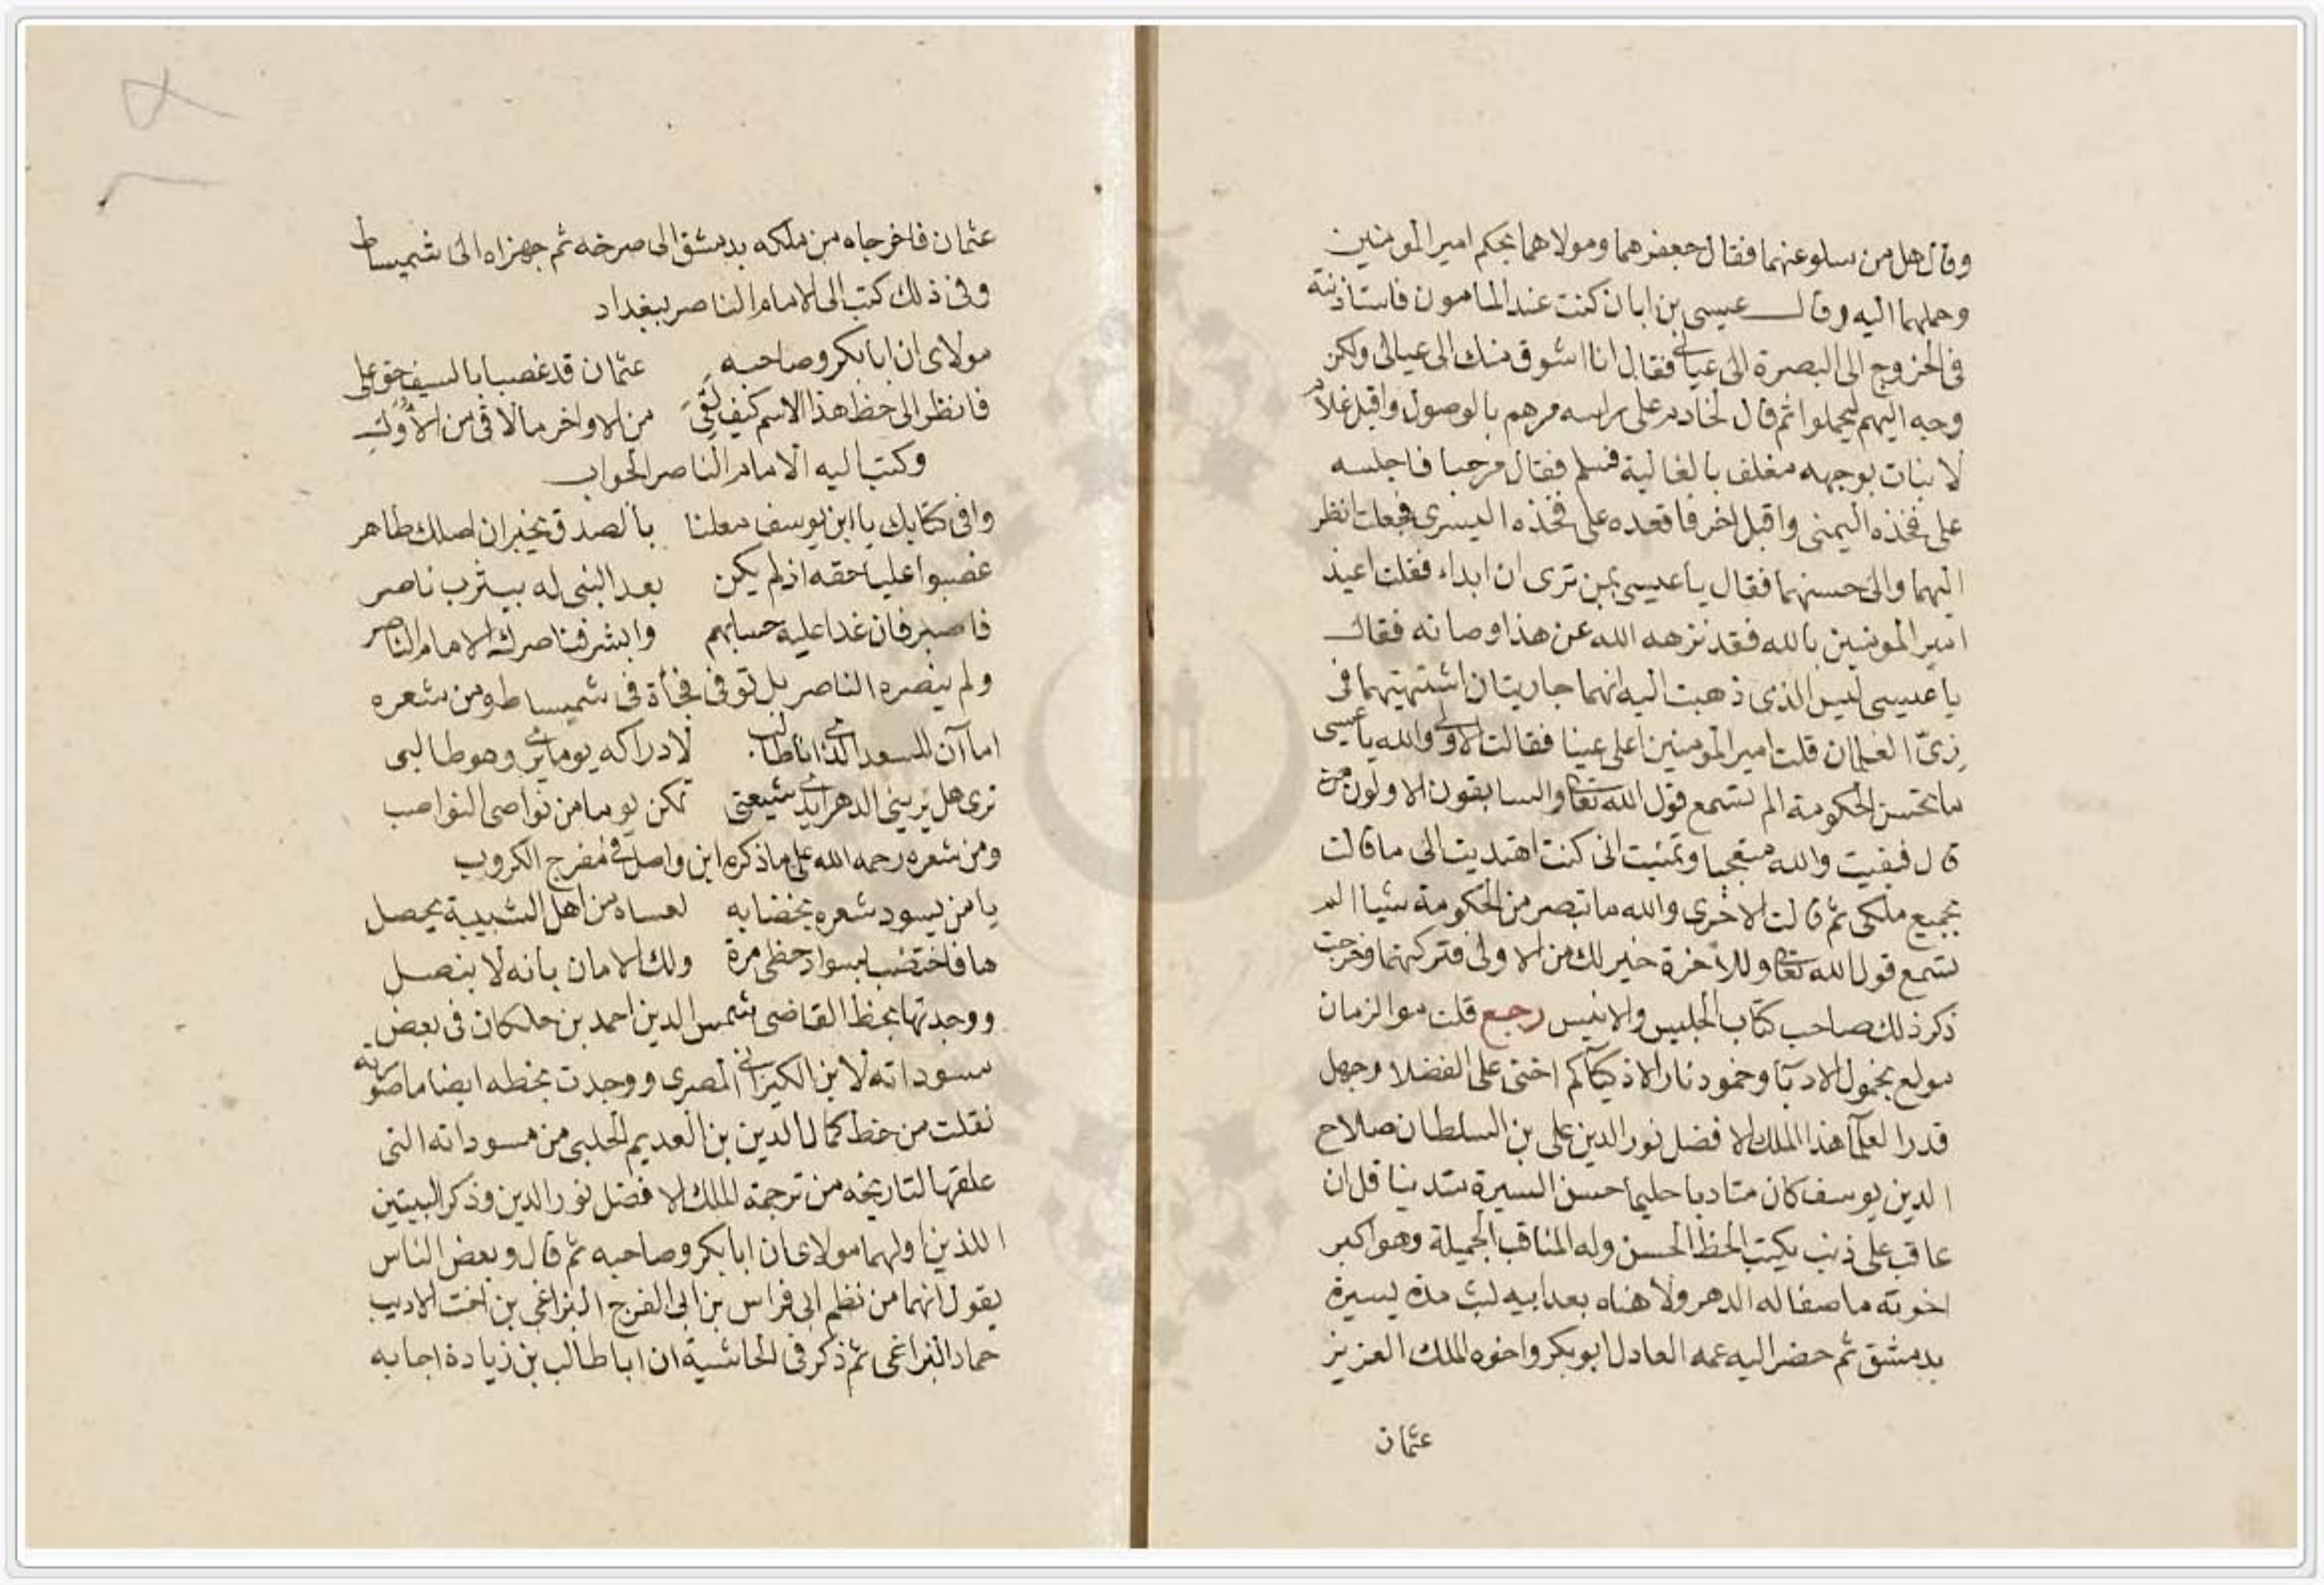 وقال هل من سلو عنهما فقال جعفر هما ومولاهما بحكم امير المومنين
وحملهما اليه وقال عيسى بن ابان كنت عند المامون فاستاذنته
فى الخروج الى البصرة الى عيالى فقال انا اشوق منك الى عيالى ولكن
وجه اليهم ليحملوا ثم قال لخادم على راسه مرهم بالوصول واقبل غلام
لا نبات بوجهه مغلف بالغالية فسلم فقال مرحبا فاجلسه
على فخذه اليمنى واقبل اخر فاقعده على فخذه اليسرى فجعلت انظر
اليهما والى حسنهما فقال يا عيسى بمن ترى ان ابداء فقلت اعيذ
امير المومنين بالله فقد نزهه الله عن هذا وصانه فقال
يا عيسى ليس الذى ذهبت اليه انهما جاريتان اشتهيتهما فى
زىّ الغلمان قلت امير المومنين اعلى عينا فقالت الاولى والله يا عيسى
ما تحسن الحكومة الم تسمع قول الله تعالى والسابقون الاولون من
قال فبقيت والله متعجبا وتمنيت انى كنت اهتديت الى ما قالت
بجميع ملكى ثم قالت الاخرى والله ما تبصر من الحكومة شيا الم
تسمع قول الله تعالى وللآخرة خير لك من الاولى فتركتهما وخرجت
ذكر ذلك صاحب كتاب الجليس والانيس رجع قلت موا الزمان
مولع بخمول الادبآ وخمود نار الاذكيآ كم اخنى على الفضلا وجهل
قدر العلمآ هذا الملك الافضل نور الدين على بن السلطان صلاح
الدين يوسف كان متادبا حليما حسن السيرة متدينا قل ان
عاقب على ذنب يكتب الخط الحسن وله المناقب الجميلة وهو اكبر
اخوته ما صفا له الدهر ولا هناه بعد ابيه لبث مدة يسيرة
بدمشق ثم حضر اليه عمه العادل ابو بكر واخوه الملك العزيز
عثمان
عثمان فاخرجاه من ملكه بدمشق الى صرخد ثم جهزاه الى شميساط
وفى ذلك كتب الى الامام الناصر ببغداد
مولاى ان ابا بكر وصاحبه عثمان قد غصبا بالسيف حق على
فانظر الى حظ هذا الاسم كيف لقى من الاواخر ما لاقى من الاُوَلِ
وكتب اليه الامام الناصر الجواب
وافى كتابك يا ابن يوسف معلنا بالصدق يخبر ان اصلك طاهر
غصبوا عليا حقه اذ لم يكن بعد النبى له بيثرب ناصر
فاصبر فان غدا عليه حسابهم وابشر فناصرك الامام الناصر
ولم ينصره الناصر بل توفى فجأة فى شميساط ومن شعره
اما آن للسعد الذى انا طالب لادراكه يوما يرى وهو طالبى
ترى هل يرينى الدهر ايدى شيعتى تمكن يوما من نواصى النواصب
ومن شعره رحمه الله على ما ذكره ابن واصل فى مفرج الكروب
يا من يسود شعره بخضابه لعساه من اهل الشبيبة يحصل
ها فاختضب بسواد حظى مرة ولك الامان بانه لا ينصل
ووجدتها بخط القاضى شمس الدين احمد بن خلكان فى بعض
مسوداته لابن الكيزانى المصرى ووجدت بخطه ايضا ما صورته
نقلت من خط كمال الدين بن العديم الحلبى من مسوداته التى
علقها لتاريخه من ترجمة الملك الافضل نور الدين وذكر البيتين
اللذين اولهما مولاى ان ابا بكر وصاحبه ثم قال وبعض الناس
يقول انهما من نظم ابى فراس بن ابى الفرج البزاغى بن اخت الاديب
حماد البزاغى ثم ذكر فى الحاشية ان ابا طالب بن زيادة اجابه